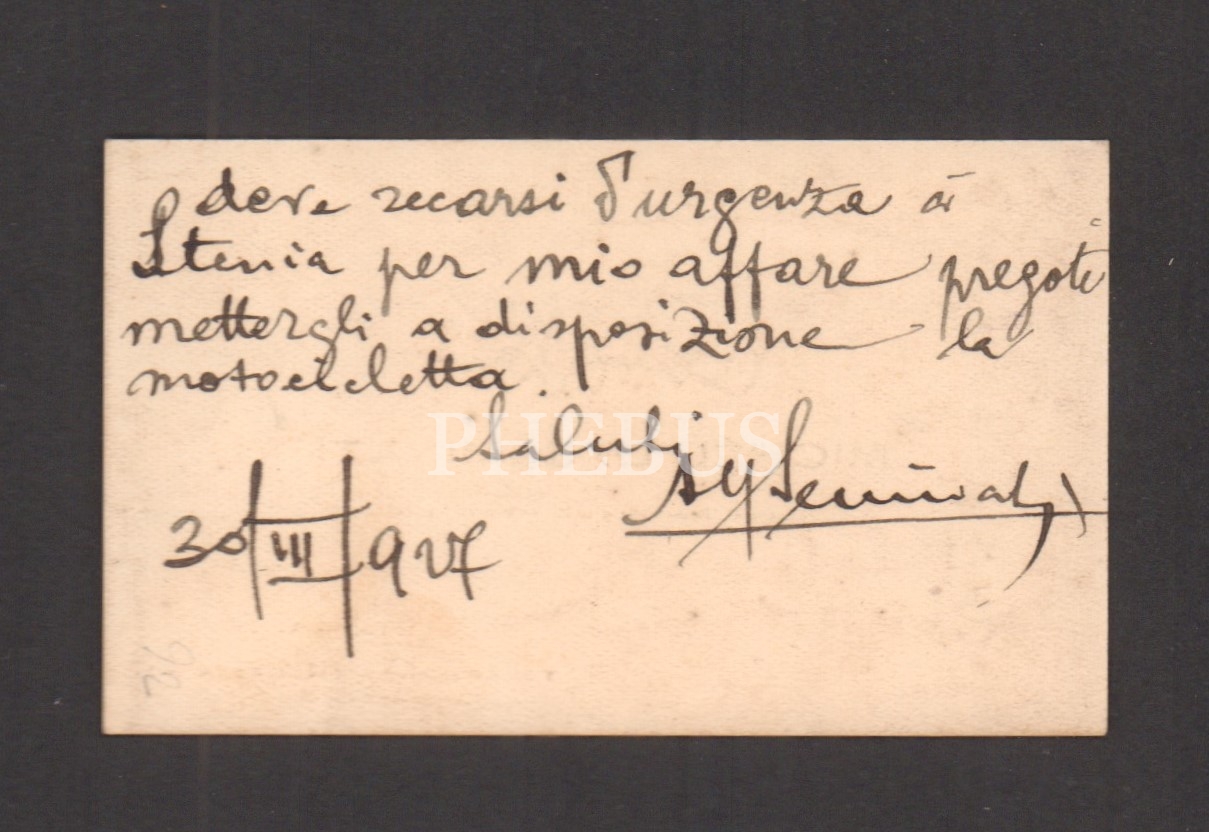 deve recarsi d'urgenza à
Stenia per mio affare pregoti
mettergli a disposizione la
motocicletta.
Saluti
PHEBUS
30/III/927
92